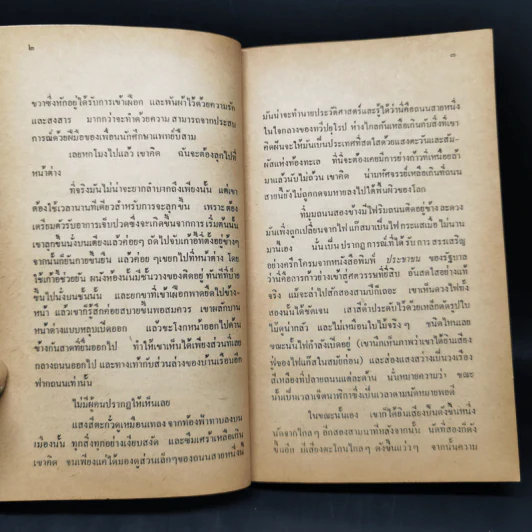 ๒
ขวาซึ่งหักอยู่ได้รับการเข้าเฝือก และพันผ้าไว้ด้วยความรัก
และสงสาร มากกว่าจะทำด้วยความ สามารถจากประสบ
การณ์ด้วยฝีมือของเพื่อนนักศึกษาแพทย์ปีสาม
เลยหกโมงไปแล้ว เขาคิด ฉันจะต้องลุกไปที่
หน้าต่าง
ที่จริงมันไม่น่าจะยากลำบากถึงเพียงนั้น แต่เขา
ต้องใช้เวลานานทีเดียวสำหรับการจะลุกขึ้น เพราะต้อง
เตรียมตัวรับอาการเจ็บปวดซึ่งจะเกิดขึ้นจากการเริ่มต้นนั้น
เขาลุกขึ้นนั่งบนเตียงแล้วค่อยๆ ถัดไปจับเก้าอี้ที่ตั้งอยู่ข้างๆ
จากนั้นก็ยันกายขึ้นยืน แล้วค่อย ๆ เขยกไปที่หน้าต่าง โดย
ใช้เก้าอี้ช่วยยัน ผนังห้องนั้นมีชั้นวางของติดอยู่ ทันทีที่ป่าย
ขึ้นไปนั่งบนชั้นนั้น และยกขาที่เข้าเฝือกพาดยืดไปข้าง
หน้า แล้วเขาก็รู้สึกค่อยสบายขึ้นพอสมควร เขาผลักบาน
หน้าต่างแบบหลุบเปิดออก แล้วชะโงกหน้าออกไปด้าน
ข้างกับสาดที่ยื่นออกไป ทำให้เขาเห็นได้เพียงส่วนที่เลย
กลางถนนออกไป และทางเท้ากับส่วนล่างของบ้านเรือนอีก
ฟากถนนเท่านั้น
ไม่มีผู้คนปรากฏให้เห็นเลย
แสงสีตะกั่วดูเหมือนเพลง จากท้องฟ้าทาบลงบน
เมืองนั้น ทุกสิ่งทุกอย่างเงียบสงัด และซึมเศร้าเหลือเกิน
เขาคิด ขนเพียงแค่ได้มองดูส่วนเล็กๆของถนนสายหนึ่งนี้
๓
มันน่าจะทำนายประวัติศาสตร์และรู้ได้ว่านี่คือถนนสายหนึ่ง
ในใจกลางของทวีปยุโรป ห่างไกลกันเหลือเกินกับสิ่งที่เขา
คิดฝันจะให้มันเป็นประเทศที่สดใสด้วยแสงตะวันและสัม-
ผัสแห่งท้องทะเล ที่นี่จะต้องเคยมีการย่างก้าวที่เหนื่อยล้า
มาแล้วนับไม่ถ้วน เขาคิด น่ามหัศจรรย์เหลือเกินที่ถนน
สายนี้ยังไม่ถูกกดจมหายลงไปใต้พื้นผิวของโลก
ที่มุมถนนสองข้างมีไฟริมถนนติดอยู่ข้างละดวง
มันเพิ่งถูกเปลี่ยนจากไฟ แก๊สมาเป็นไฟ กระแสเมื่อ ไม่นาน
มานี้เอง นั่นเป็นปรากฏ การณ์ที่ได้รับ การ สรรเสริญ
อย่างครึกโครมจากหนังสือพิมพ์ ประชาชน ของรัฐบาล
ว่านี่คือการก้าวย่างเข้าสู่ศตวรรษที่ยี่สิบ อันสดใสอย่างแท้
จริง แม้จะล่าไปสักสองสามปีก็เถอะ เขาเห็นดวงไฟทั้ง
สองนั้นได้ชัดเจน เสาสีดำประดับไว้ด้วยเหล็กดัดรูปใบ
ไม้ดูน่ากลัว และไม่เหมือนใบไม้จริงๆ ชนิดไหนเลย
ขณะนั้นไฟกำลังเปิดอยู่ (เขานึกเห็นภาพว่าเขาได้ยินเสียง
ฟู่ของไฟแก๊สในสมัยก่อน) และส่องแสงสว่างเป็นวงเรือง
สีเหลืองที่ปลายถนนแต่ละด้าน นั่นหมายความว่า ขณะ
นั้นเป็นเวลาเจ็ดนาฬิกาซึ่งเป็นเวลาตามนัดหมายพอดี
ในขณะนั้นเอง เขาก็ได้ยินเสียงปืนดังขึ้นหนึ่ง
นัดจากใกลๆ อีกสองสามนาทีหลังจากนั้น นัดที่สองก็ดัง
ขึ้นอีก มีเสียงตะโกนใกลๆ ดังขึ้นแว่วๆ จากนั้นความ